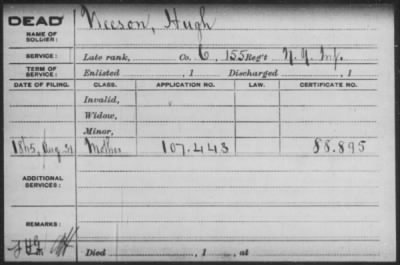 DEAD Neeson, Hugh
NAME OF SOLDIER:
SERVICE: Late rank, Co. G, 155 Reg't N.Y. Inf.
TERM OF SERVICE: Enlisted , 1 Discharged , 1
DATE OF FILING. CLASS. APPLICATION NO. LAW. CERTIFICATE NO.
Invalid,
Widow,
Minor,
1865, Aug. 31 Mother 107.443 88.895
ADDITIONAL SERVICES:
REMARKS:
Died , 1 , at